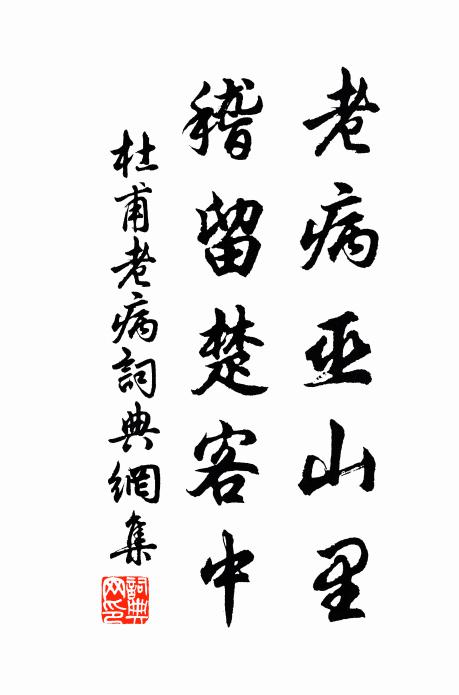 老病巫山里
稽留楚客中
杜甫老病詞典網集
詞典网印